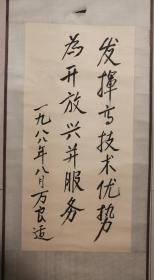 发挥高技术优势
为开放兴井服务
一九八八年八月万良适